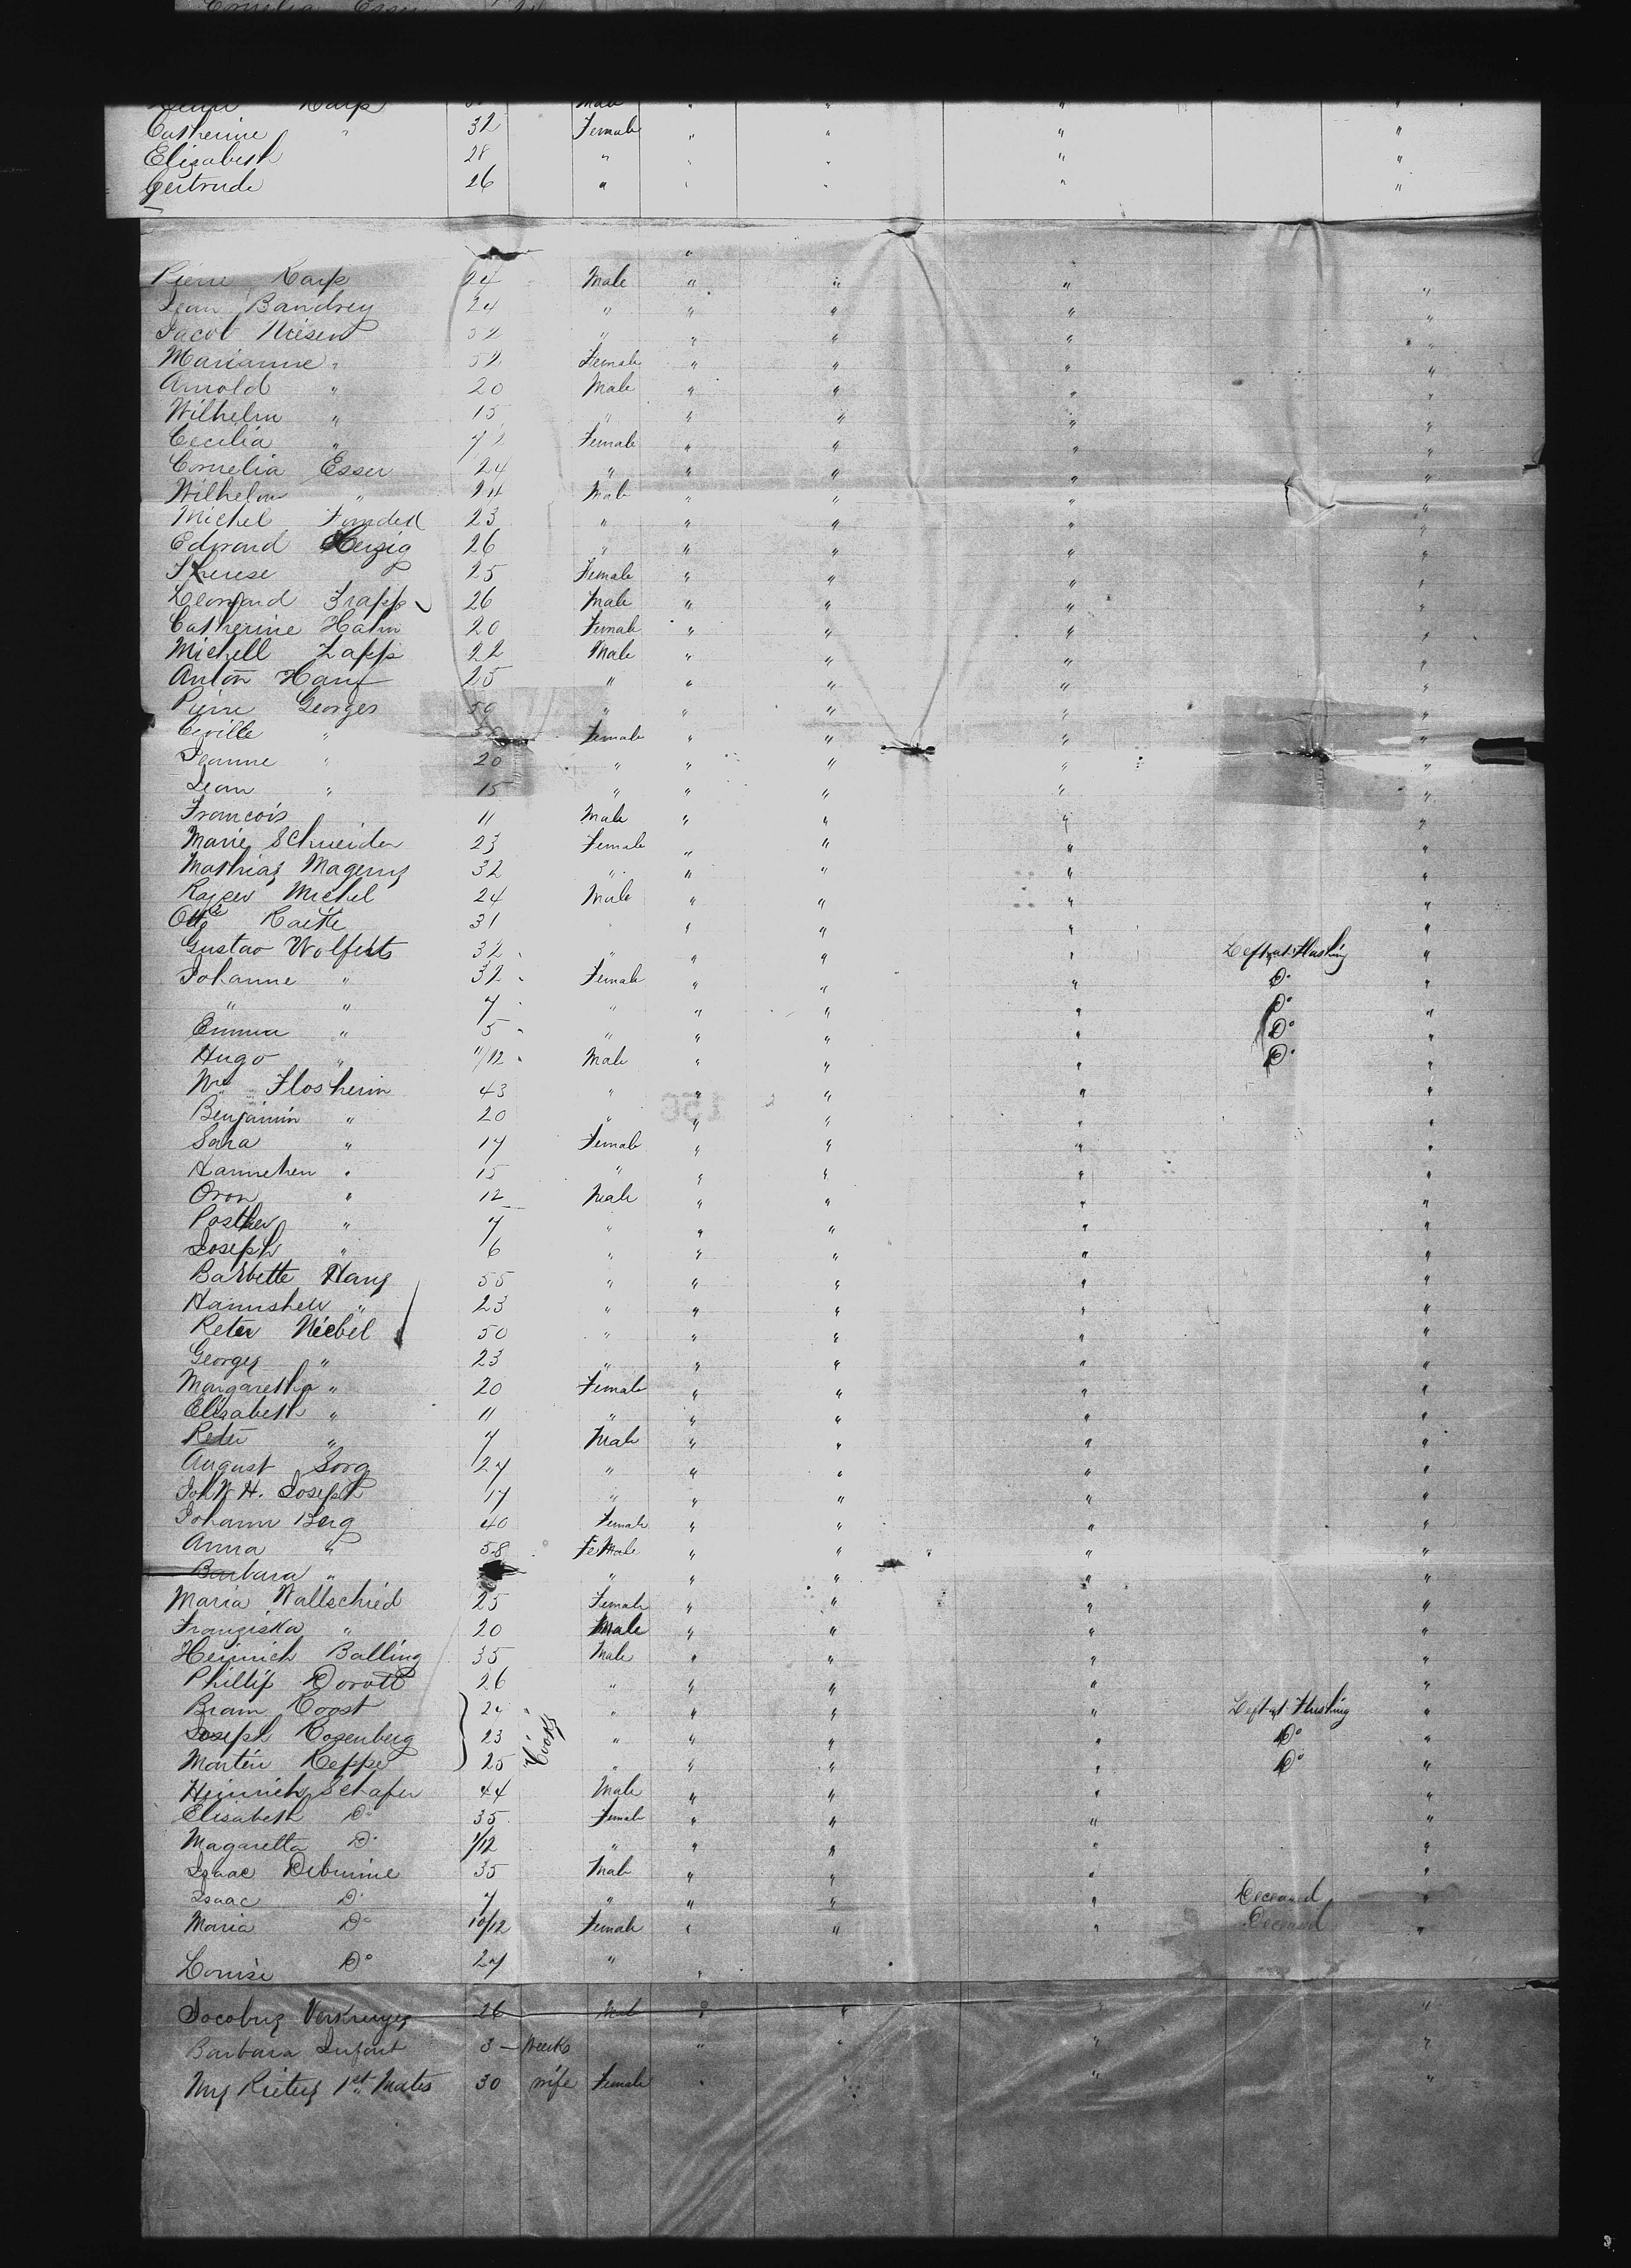 Cornelia Esser 24
Karp Male " " " "
Catherine " 32 Female " " " "
Elizabeth 28 " " " " "
Gertrude 26 " " " " "
Pierre Karp 24 Male " " " "
Jean Bandrey 24 " " " " "
Jacob Niesen 52 " " " " "
Marianne " 52 Female " " " "
Arnold " 20 Male " " " "
Wilhelm " 15 " " " " "
Cecilia " 7 Female " " " "
Cornelia Esser 24 " " " " "
Wilhelm " 24 Male " " " "
Michel 23 " " " " "
Edward Herzig 26 " " " " "
Therese 25 Female " " " "
Leonard Trapp 26 Male " " " "
Catherine Hahn 20 Female " " " "
Michell Zapp 22 Male " " " "
Anton Hauf 25 " " " " "
Pierre Georges 50 " " " " "
Civille " Female " " " "
Jeanne " 20 " " " " "
Jean " 15 " " " " "
Francois 11 Male " " " "
Marie Schneider 23 Female " " " "
Mathias Magerus 32 " " " " "
Michel 24 Male " " " "
Otto 31 " " " "
Gustav Wolferts 32 " " " " Left at Flushing "
Johanne " 32 Female " " " Do "
" " 7 " " " " Do "
Emma " 5 " " " " Do "
Hugo " 11/12 Male " " " Do "
Wm Flosheim 43 " " " " "
Benjamin " 20 " " " " "
Sara " 17 Female " " " "
Hannchen " 15 " " " " "
Oron " 12 Male " " " "
Posther " 7 " " " " "
Joseph " 6 " " " " "
Barbette Haug 55 " " " " "
Hannshen " 23 " " " " "
Peter Niebel 50 " " " " "
Georges " 23 " " " " "
Margaretha " 20 Female " " " "
Elisabeth " 11 " " " " "
Peter " 7 Male " " " "
August Sorg 27 " " " " "
John H. Joseph 17 " " " " "
Johann Berg 40 Female " " " "
Anna " 58 Female " " " "
Barbara " " " " " "
Maria Wallschied 25 Female " " " "
Franziska " 20 Male " " " "
Heinrich Balling 35 Male " " " "
Phillip Dorott 26 " " " " "
Bram Roost 24 " " " " Left at Flushing "
Joseph Rosenberg 23 Cooks " " " " Do "
Martin Keppe 25 " " " " Do "
Heinrich Schafer 44 Male " " " "
Elisabeth Do 35 Female " " " "
Magaretta Do 1/12 " " " " "
Isaac Debunne 35 Male " " " "
Isaac Do 7 " " " " Deceased "
Maria Do 10/12 Female " " " Deceased "
Louise Do 27 " "
Jacobus Verkruyes 26 Male " " " "
Barbara Infant 3 - Weeks " " " "
Mrs Rietus 1st Mates 30 wife Female " " " "